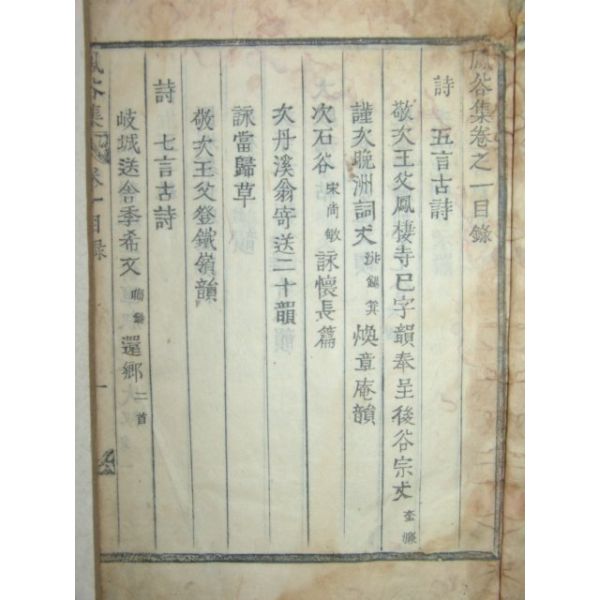 鳳谷集卷之一目錄
詩 五言古詩
敬次王父鳳棲寺巳字韻奉呈後谷宗丈 奎濂
謹次晩洲詞丈 洪錫箕 煥章庵韻
次石谷 宋尙敏 詠懷長篇
次丹溪翁寄送二十韻
詠當歸草
敬次王父登鐵嶺韻
詩 七言古詩
岐城送舍季希文 疇錫 還鄕 二首
鳳谷集 卷一目錄 一